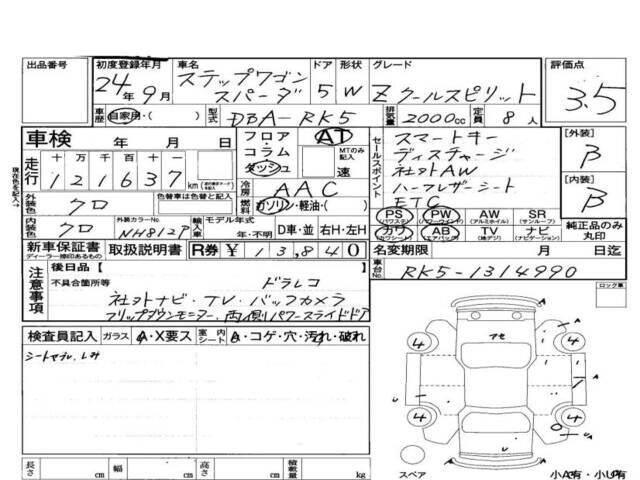 出品番号 初度登録年月 車名 ドア 形状 グレード 評価点
24年 9月 ステップワゴン スパーダ 5 W Z クールスピリット 3.5
車歴 自家用・( ) 型式 DBA-RK5 排気量 2000cc 定員 8人
車検 年 月 日 フロア・コラム ダッシュ AT MTのみ記入 速
セールスポイント スマートキー
ディスチャージ
社外AW
ハーフレザーシート
ETC
[外装] B
[内装] B
走行 十 万 千 百 十 一
1 2 1 6 3 7 km
現在色を記入→
外装色 クロ 色替車は色替と記入
冷房 AAC
燃料 ガソリン・軽油・( )
内装色 クロ 外装カラーNo. NH812P 輸入車 モデル年式 年・不明 D車・並 右H・左H
PS (パワステ) PW (パワーウインド) AW (アルミホイル) SR (サンルーフ)
カワ (カワシート) AB (エアバック) TV (地デジ) ナビ (ナビゲーション)
純正品のみ丸印
新車保証書 ディーラー捺印あるもの 取扱説明書 R券 ¥ 13,840
名変期限 月 日迄
車台No. RK5-1314990
注意事項 後日品 [ ]
不具合箇所等 ドラレコ
社外ナビ・TV・バックカメラ
フリップダウンモニター、両側パワースライドドア
ロック車
検査員記入 ガラス A・X要ス 室内シート A・コゲ・穴・汚れ・破れ
アセ
4 4
4 4
A
A
U
U
A
スペア 小A有・小U有
長さ cm 幅 cm 高さ cm 積載量 kg